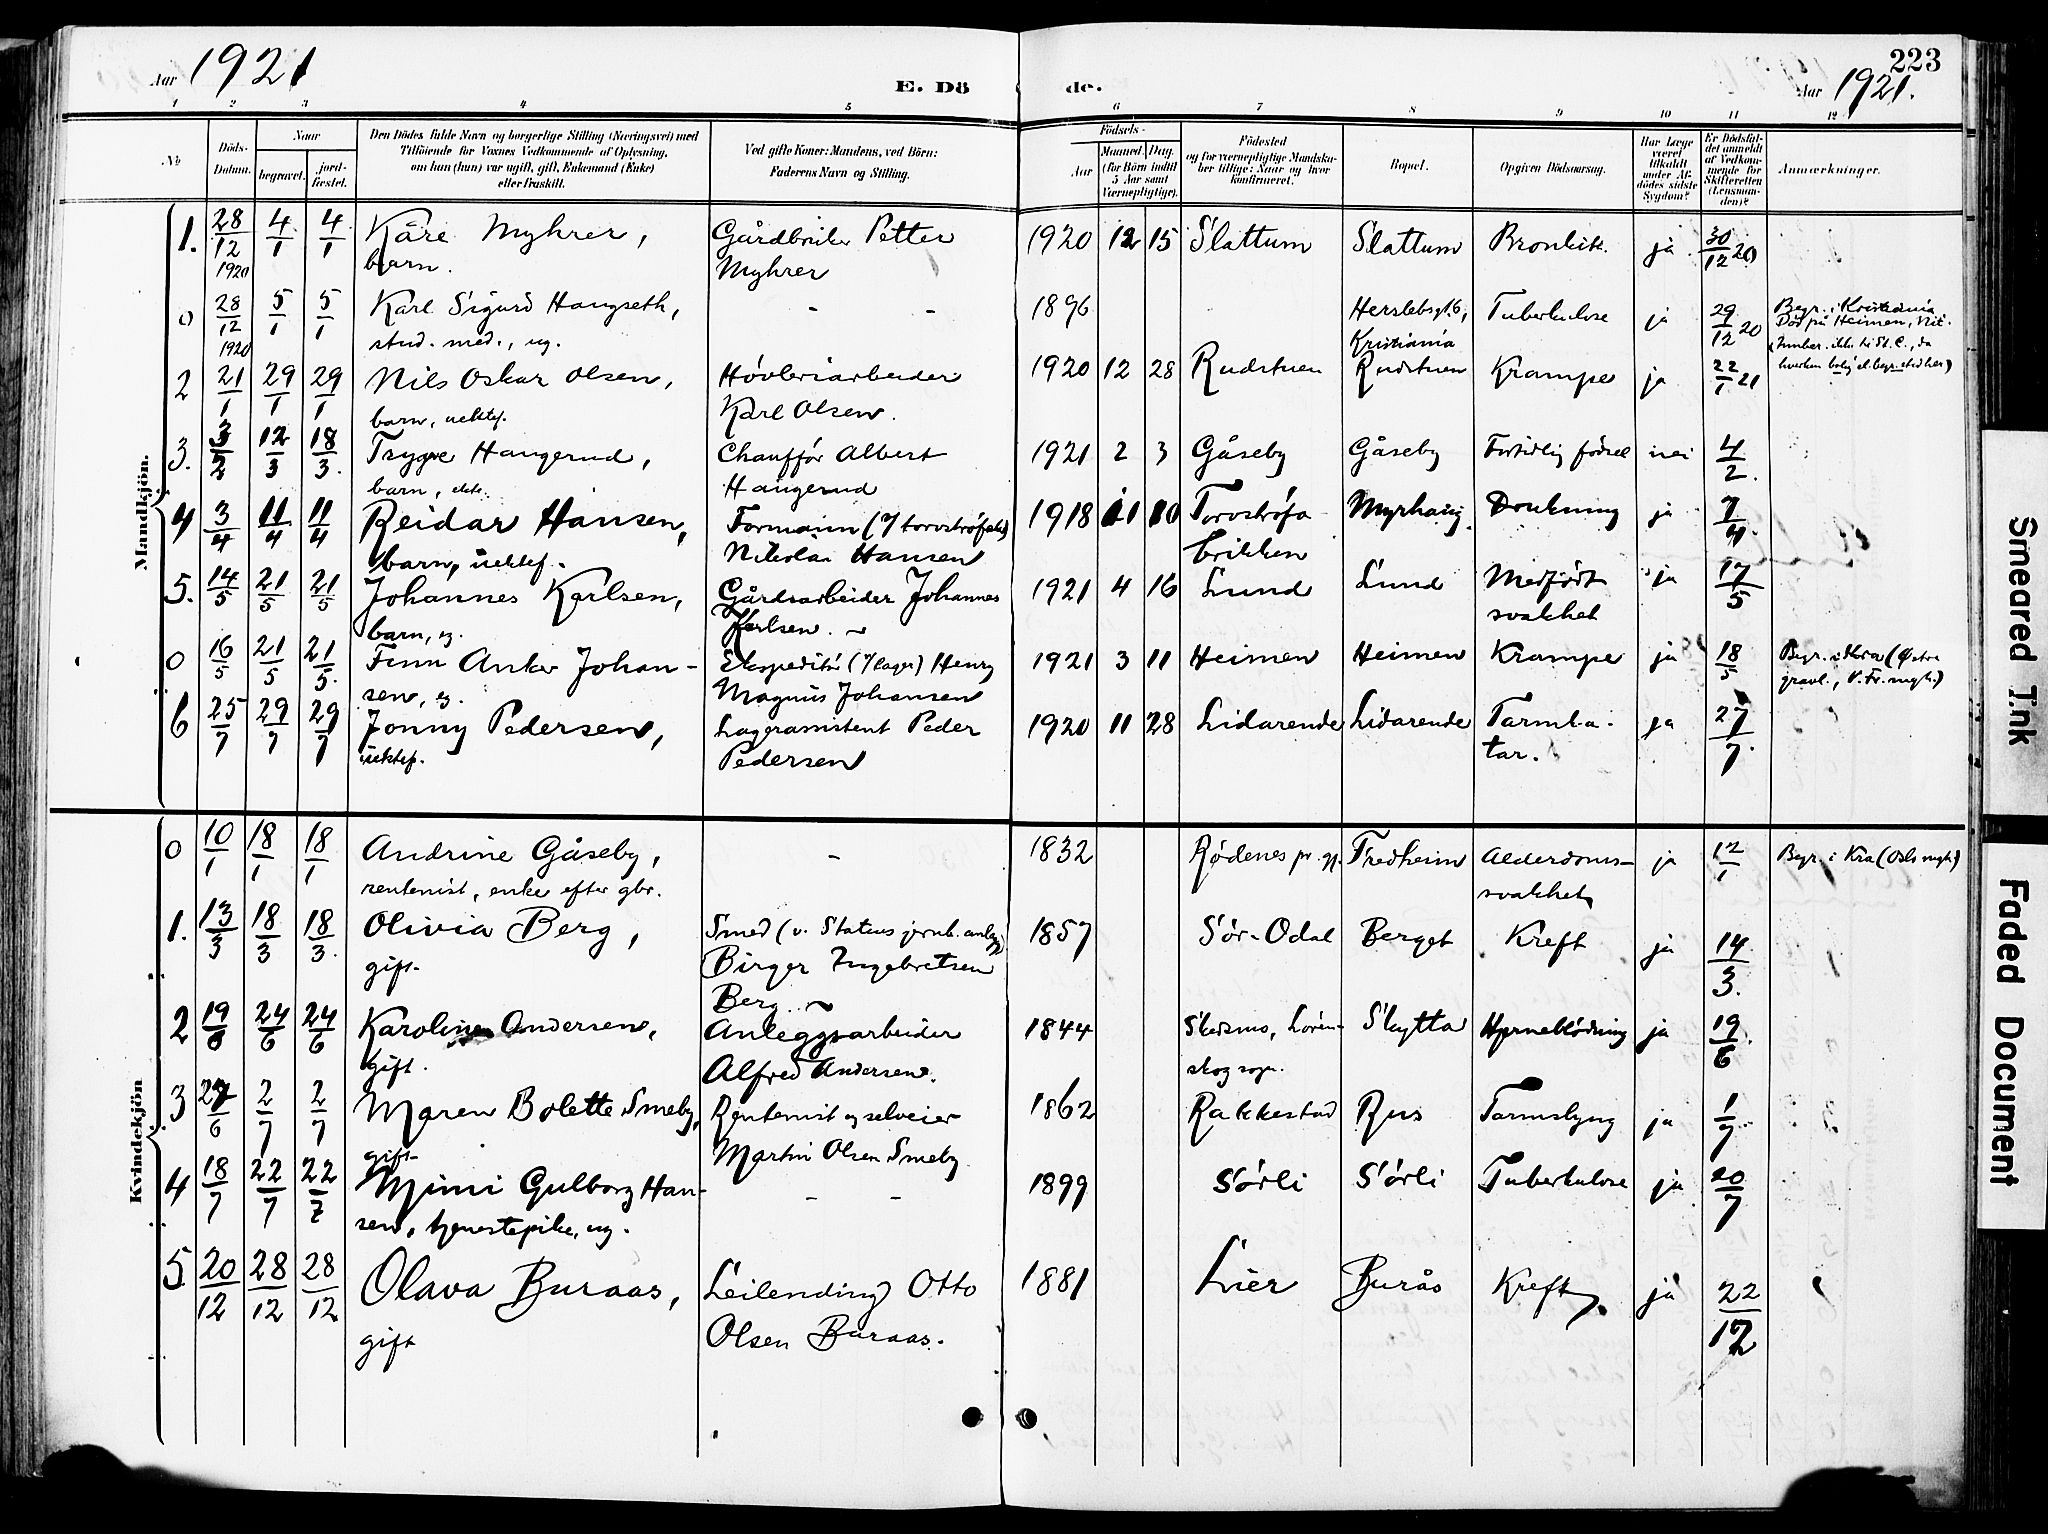 Aar 1921
E. Dö de.
223
Aar 1921.
1 2 3 4 5 6 7 8 9 10 11 12
No
Döds-Datum.
Naar
begravet.
jord-fæstet.
Den Dödes fulde Navn og borgerlige Stilling (Næringsvei) med
Tilföiende for Voxnes Vedkommende af Oplysning,
om han (hun) var ugift, gift, Enkemand (Enke)
eller fraskilt.
Ved gifte Koner: Mandens, ved Börn:
Faderens Navn og Stilling.
Födsels-
Aar
Maaned. Dag.
(for Börn indtil
5 Aar samt
Værnepligtige).
Födested
og for værnepligtige Mandska-
ber tillige: Naar og hvor
konfirmeret.
Bopæl.
Opgiven Dödsaarsag.
Har Læge
været
tilkaldt
under Af-
dödes sidste
Sygdom?
Er Dödsfal-
det anmeldt
af Vedkom-
mende for
Skifteretten
(Lensman-
den)?
Anmærkninger.
Mandkjön.
1. 28/12 1920 4/1 4/1 Kåre Myhrer, Gårdbruker Petter 1920 12 15 Slattum Slattum Bronkit. ja 30/12 20
barn. Myhrer
0 28/12 1920 5/1 5/1 Karl Sigurd Haugseth, - - 1896 Herslebsgt. 6, Tuberkulose ja 29/12 20 Begr. i Kristiania
stud. med., ug. Kristiania Död på Heimen, Nit.
2 21/1 29/1 29/1 Nils Oskar Olsen, Høvleriarbeider 1920 12 28 Rudstuen Rudstuen Krampe ja 22/1 21
barn, uektef. Karl Olsen.
3. 3/2 12/3 18/3. Trygve Haugerud, Chauffør Albert 1921 2 3 Gåseby Gåseby Fortidlig fødsel nei 4/2.
barn, ekte. Haugerud
4 3/4 11/4 11/4 Reidar Hansen, Formann (v/ torvstrøfabr.) 1918 11 10 Torvstrøfa Myrhaug Drukning ja 7/4
barn, uektef. Nikolai Hansen brikken
5. 14/5 21/5 21/5 Johannes Karlsen, Gårdsarbeider Johannes 1921 4 16 Lund Lund Medfødt ja 17/5
barn, eg. Karlsen. svakhet
0 16/5 21/5 21/5. Finn Anker Johan- Ekspeditør (v/ lager) Henry 1921 3 11 Heimen Heimen Krampe ja 18/5 Begr. i Kra (Østre
sen, eg. Magnus Johansen gravl., V. Fr. mgh.)
6 25/7 29/7 29/7 Jonny Pedersen, Lagerassistent Peder 1920 11 28 Lidarende Lidarende Tarmka- ja 27/7.
uektef. Pedersen tar.
Kvindekjön
0 10/1 18/1 18/1 Andrine Gåseby, - 1832 Rødenes pr.gj. Fredheim Alderdoms- ja 12/1 Begr. i Kra (Oslo mgh.)
rentenist, enke efter gbr. svakhet
1. 13/3 18/3 18/3. Olivia Berg, Smed (v. Statens jernb.anlegg) 1857 Sør-Odal Berget Kreft ja 14/3.
gift. Birger Ingebretsen
Berg.
2 19/6 24/6 24/6 Karoline Andersen, Anleggsarbeider 1844 Skedsmo, Løren- Skytta Hjerneblødning ja 19/6.
gift. Alfred Andersen. skog sogn.
3 27/6 2/7 2/7 Maren Bolette Smeby, Rentenist og selveier 1862 Rakkestad Rus Tarmslyng ja 1/7
gift. Martin Olsen Smeby.
4 18/7 22/7 22/7 Mimi Gulborg Han- - - 1899 Sørli Sørli Tuberkulose ja 20/7
sen, tjenestepike, ug.
5 20/12 28/12 28/12 Olava Buraas, Leilending Otto 1881 Lier Burås Kreft. ja 22/12
gift Olsen Buraas.
Smeared Ink
Faded Document